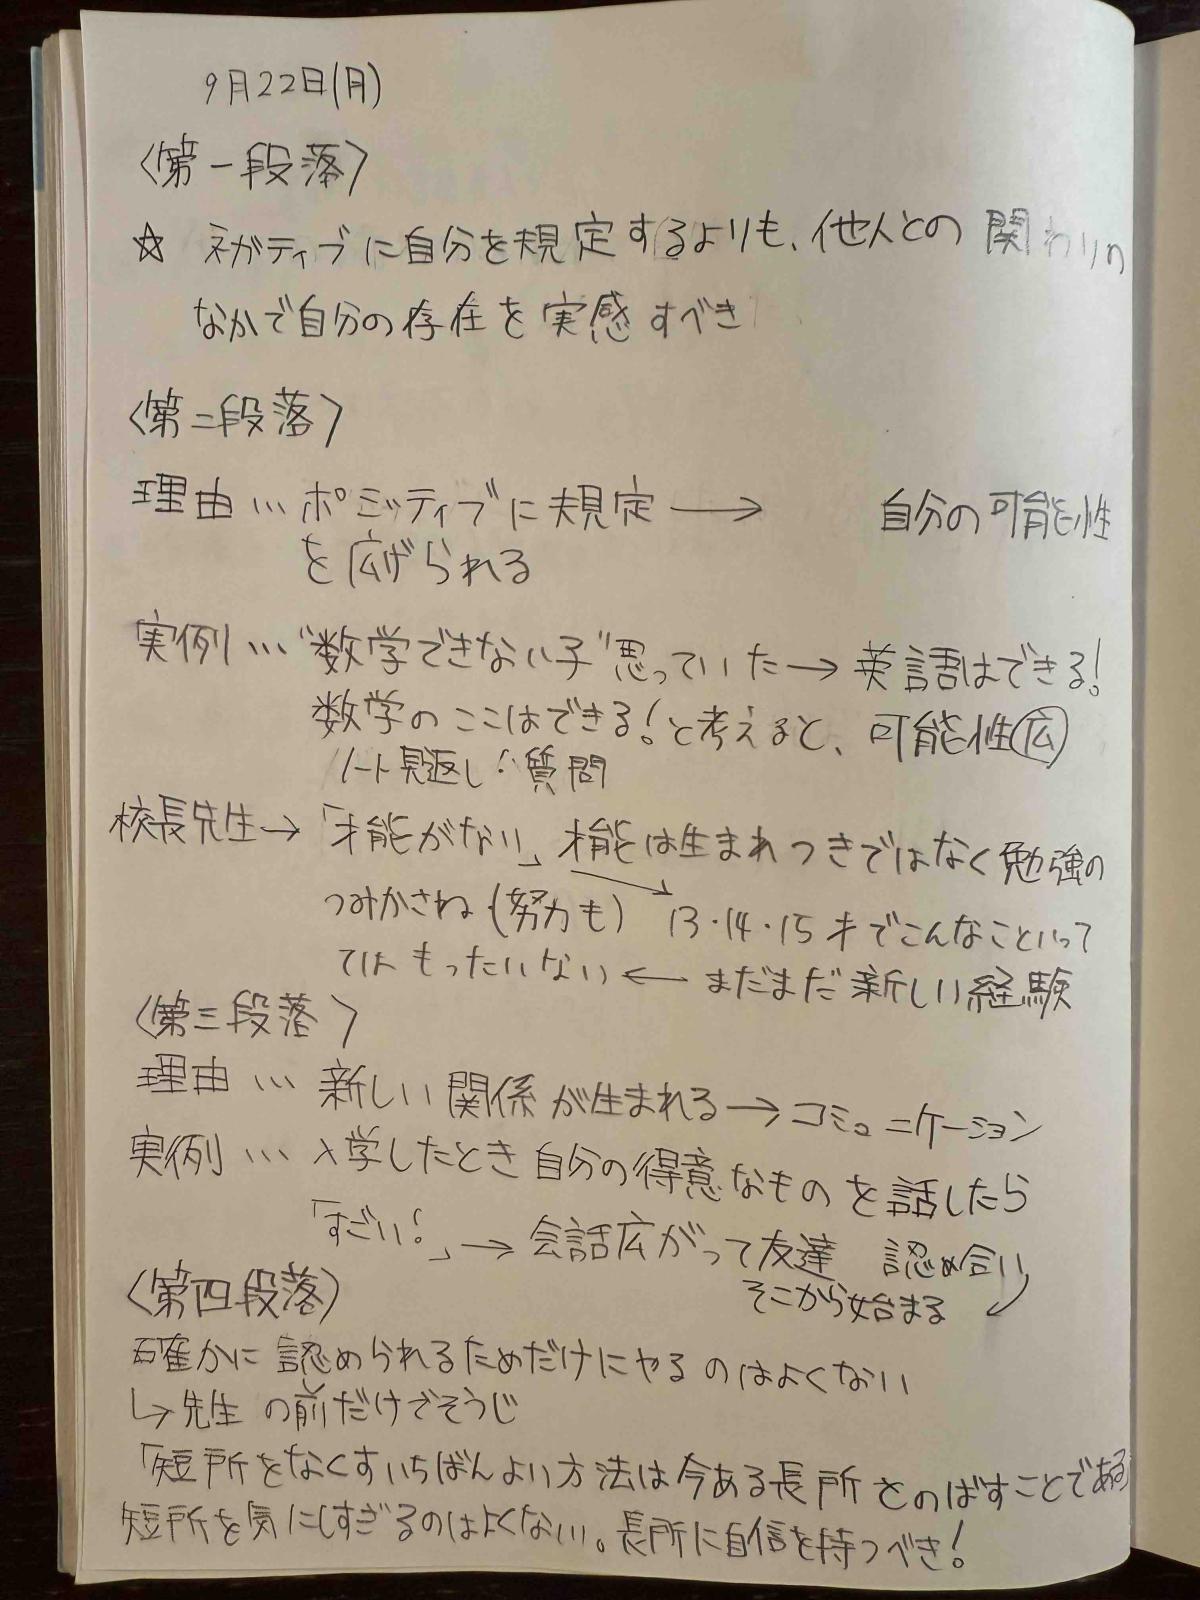 9月22日(月)
〈第一段落〉
☆ ネガティブに自分を規定するよりも、他人との関わりの
なかで自分の存在を実感すべき
〈第二段落〉
理由… ポミッティブに規定 → 自分の可能性
を広げられる
実例…"数学できない子"思っていた→英語はできる!
数学のここはできる!と考えると、可能性㊎広
ノート見返し・質問
校長先生→「才能がない」才能は生まれつきではなく勉強の
つみかさね(努力も) 13・14・15才でこんなこといって
ては もったいない ← まだまだ新しい経験
〈第三段落〉
理由… 新しい関係が生まれる→コミュニケーション
実例… 入学したとき自分の得意なものを話したら
「すごい!」→ 会話広がって友達 認め合い
そこから始まる
〈第四段落〉
確かに認められるためだけにやるのはよくない
↳先生の前だけでそうじ
「短所をなくすいちばんよい方法は今ある長所とのばすことである」
短所を気にしすぎるのはよくない。長所に自信を持つべき!